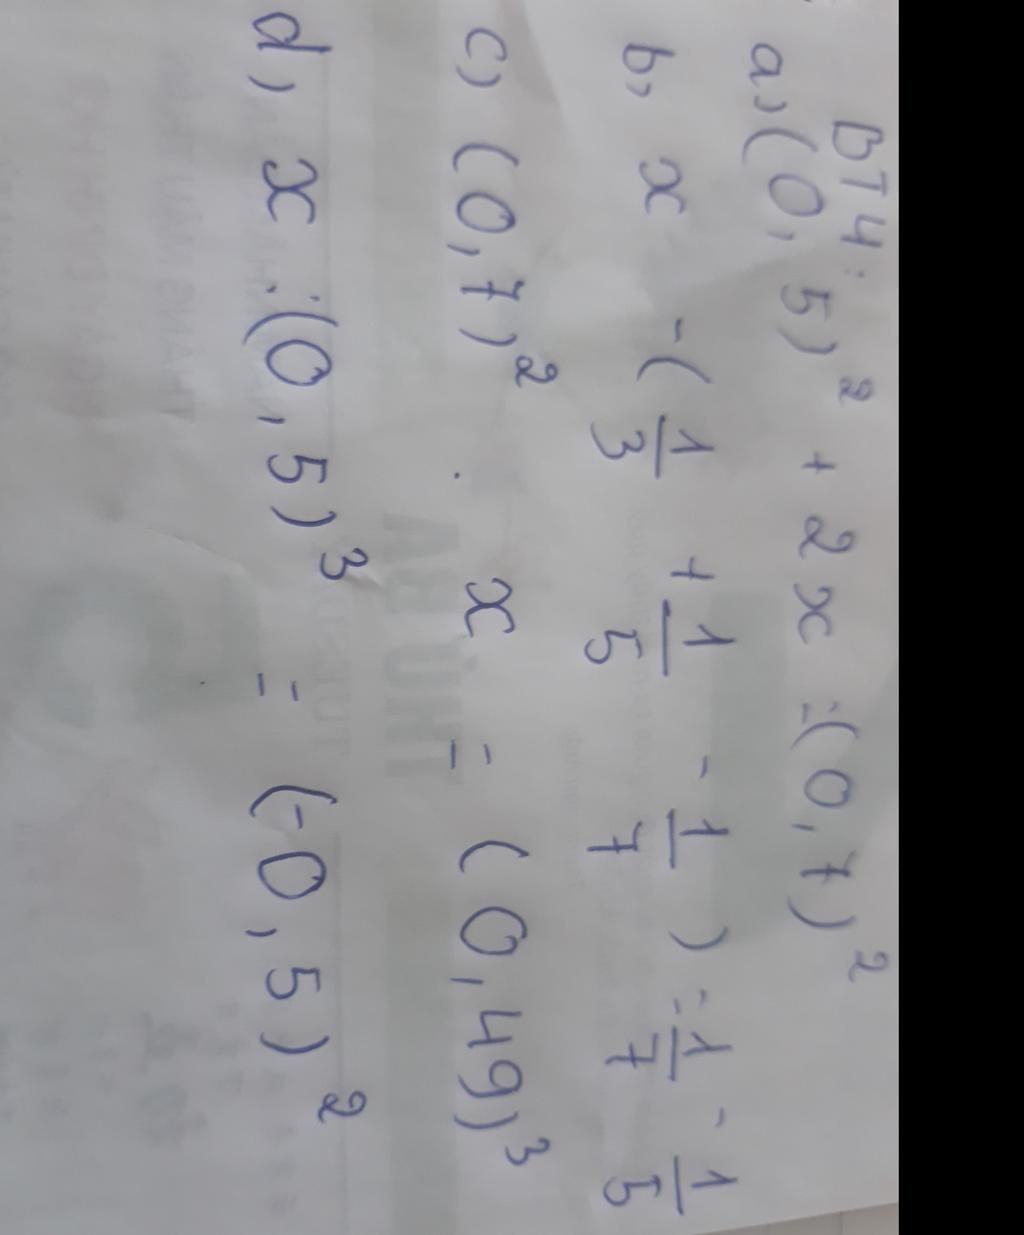 BT4:
a, (0,5)² + 2x = (0,7)²
b, x - (1/3 + 1/5 - 1/7) = 1/7 - 1/5
c) (0,7)² . x = (0,49)³
d) x : (0,5)³ = (-0,5)²